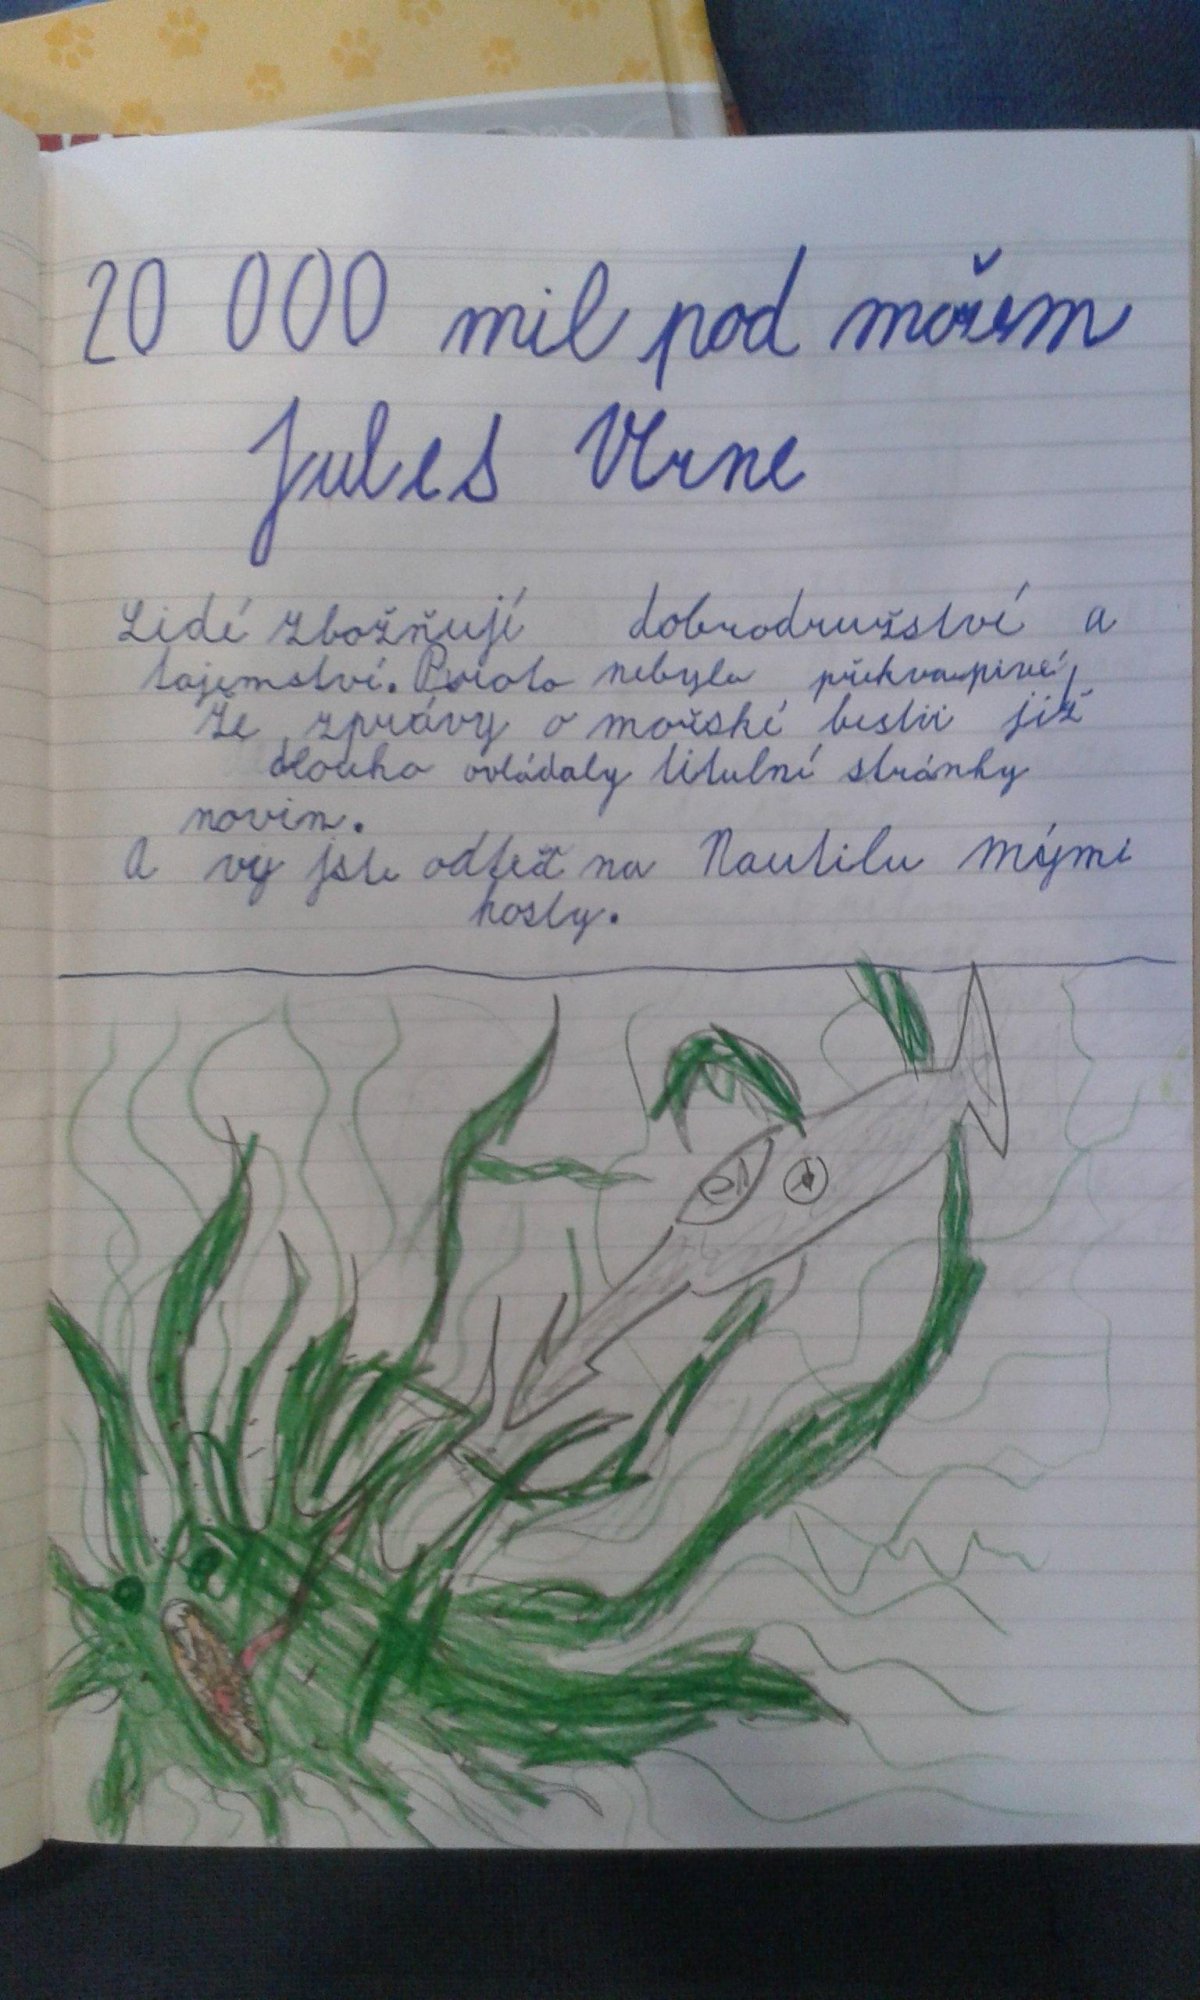 20 000 mil pod mořem
Jules Verne
Lidé zbožňují dobrodružství a
tajemství. Proto nebylo překvapivé,
že zprávy o mořské bestii již
dlouho ovládaly titulní stránky
novin.
A vy jste odteď na Nautilu mými
hosty.